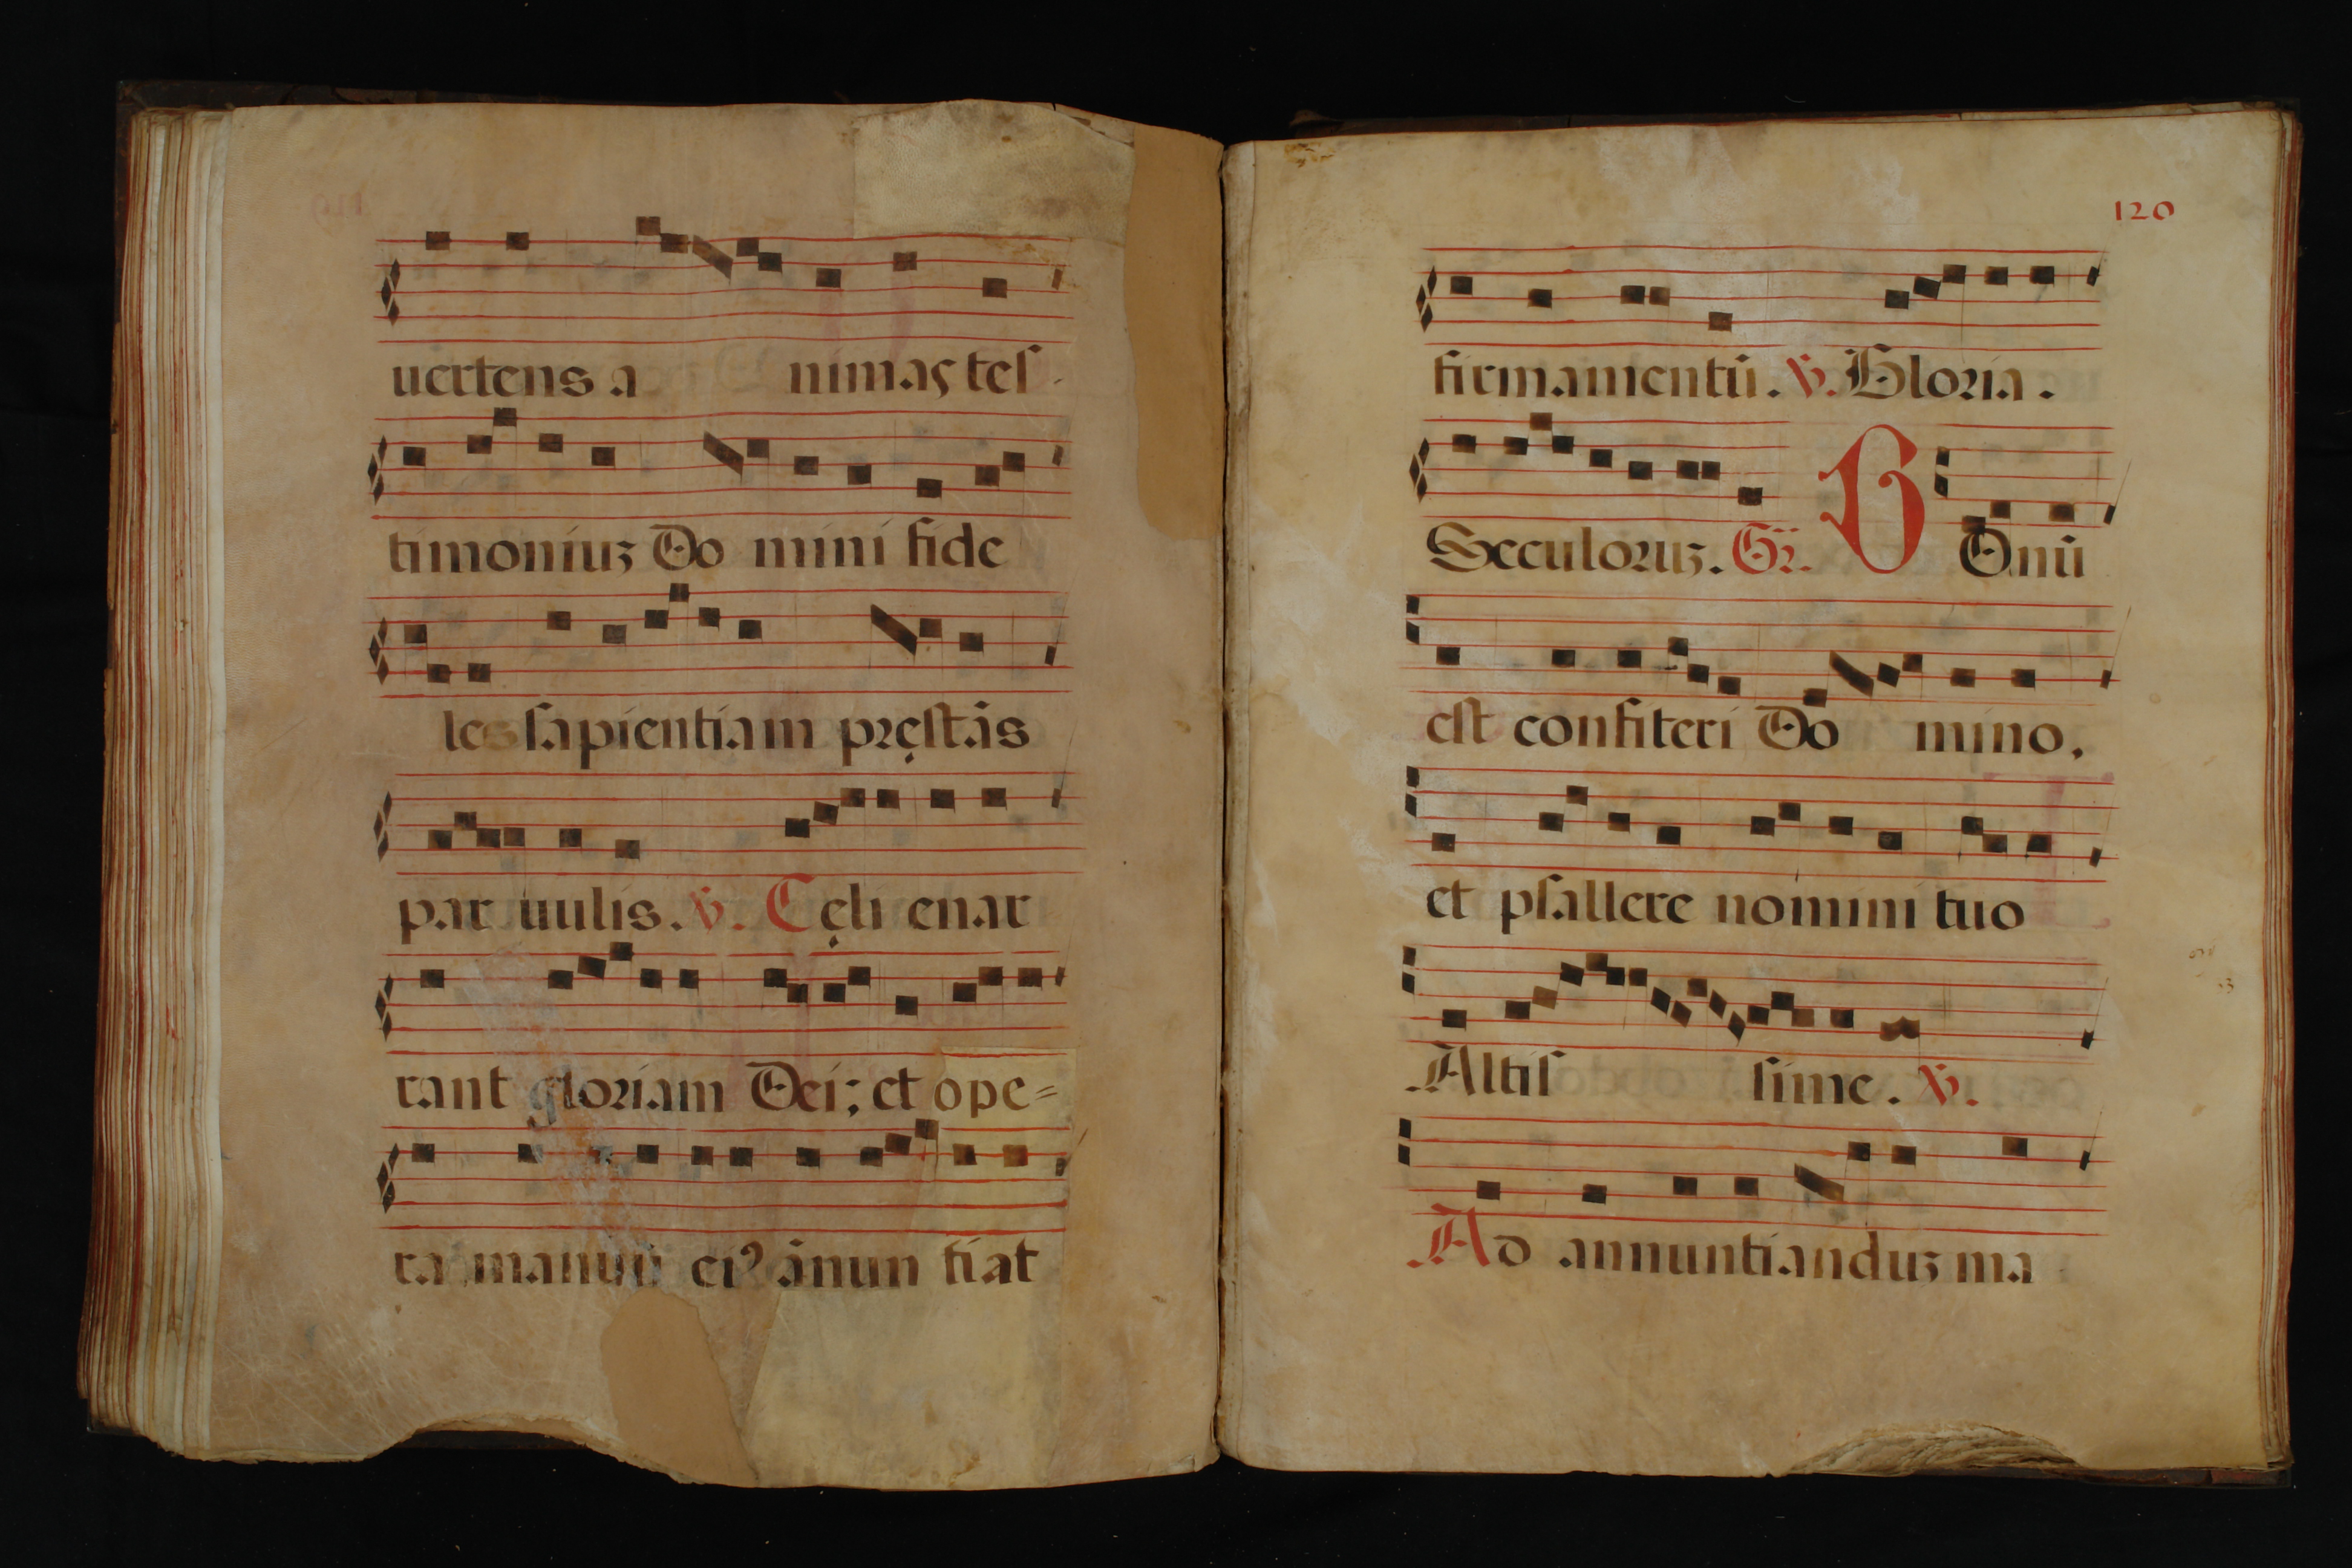 uertens a nimas tes
timoniuꝫ Do mini fide
les sapientiam pręstās
par uulis. ℣. Cęli enar
rant gloriam Dei; et ope=
ra manuū eiꝰ ānun tiat
120
firmamentū. ℣. Gloria.
Seculoruꝫ. Gr. B Onū
est confiteri Do mino,
et psallere nomini tuo
Altis sime. ℣.
Ad annuntianduꝫ ma